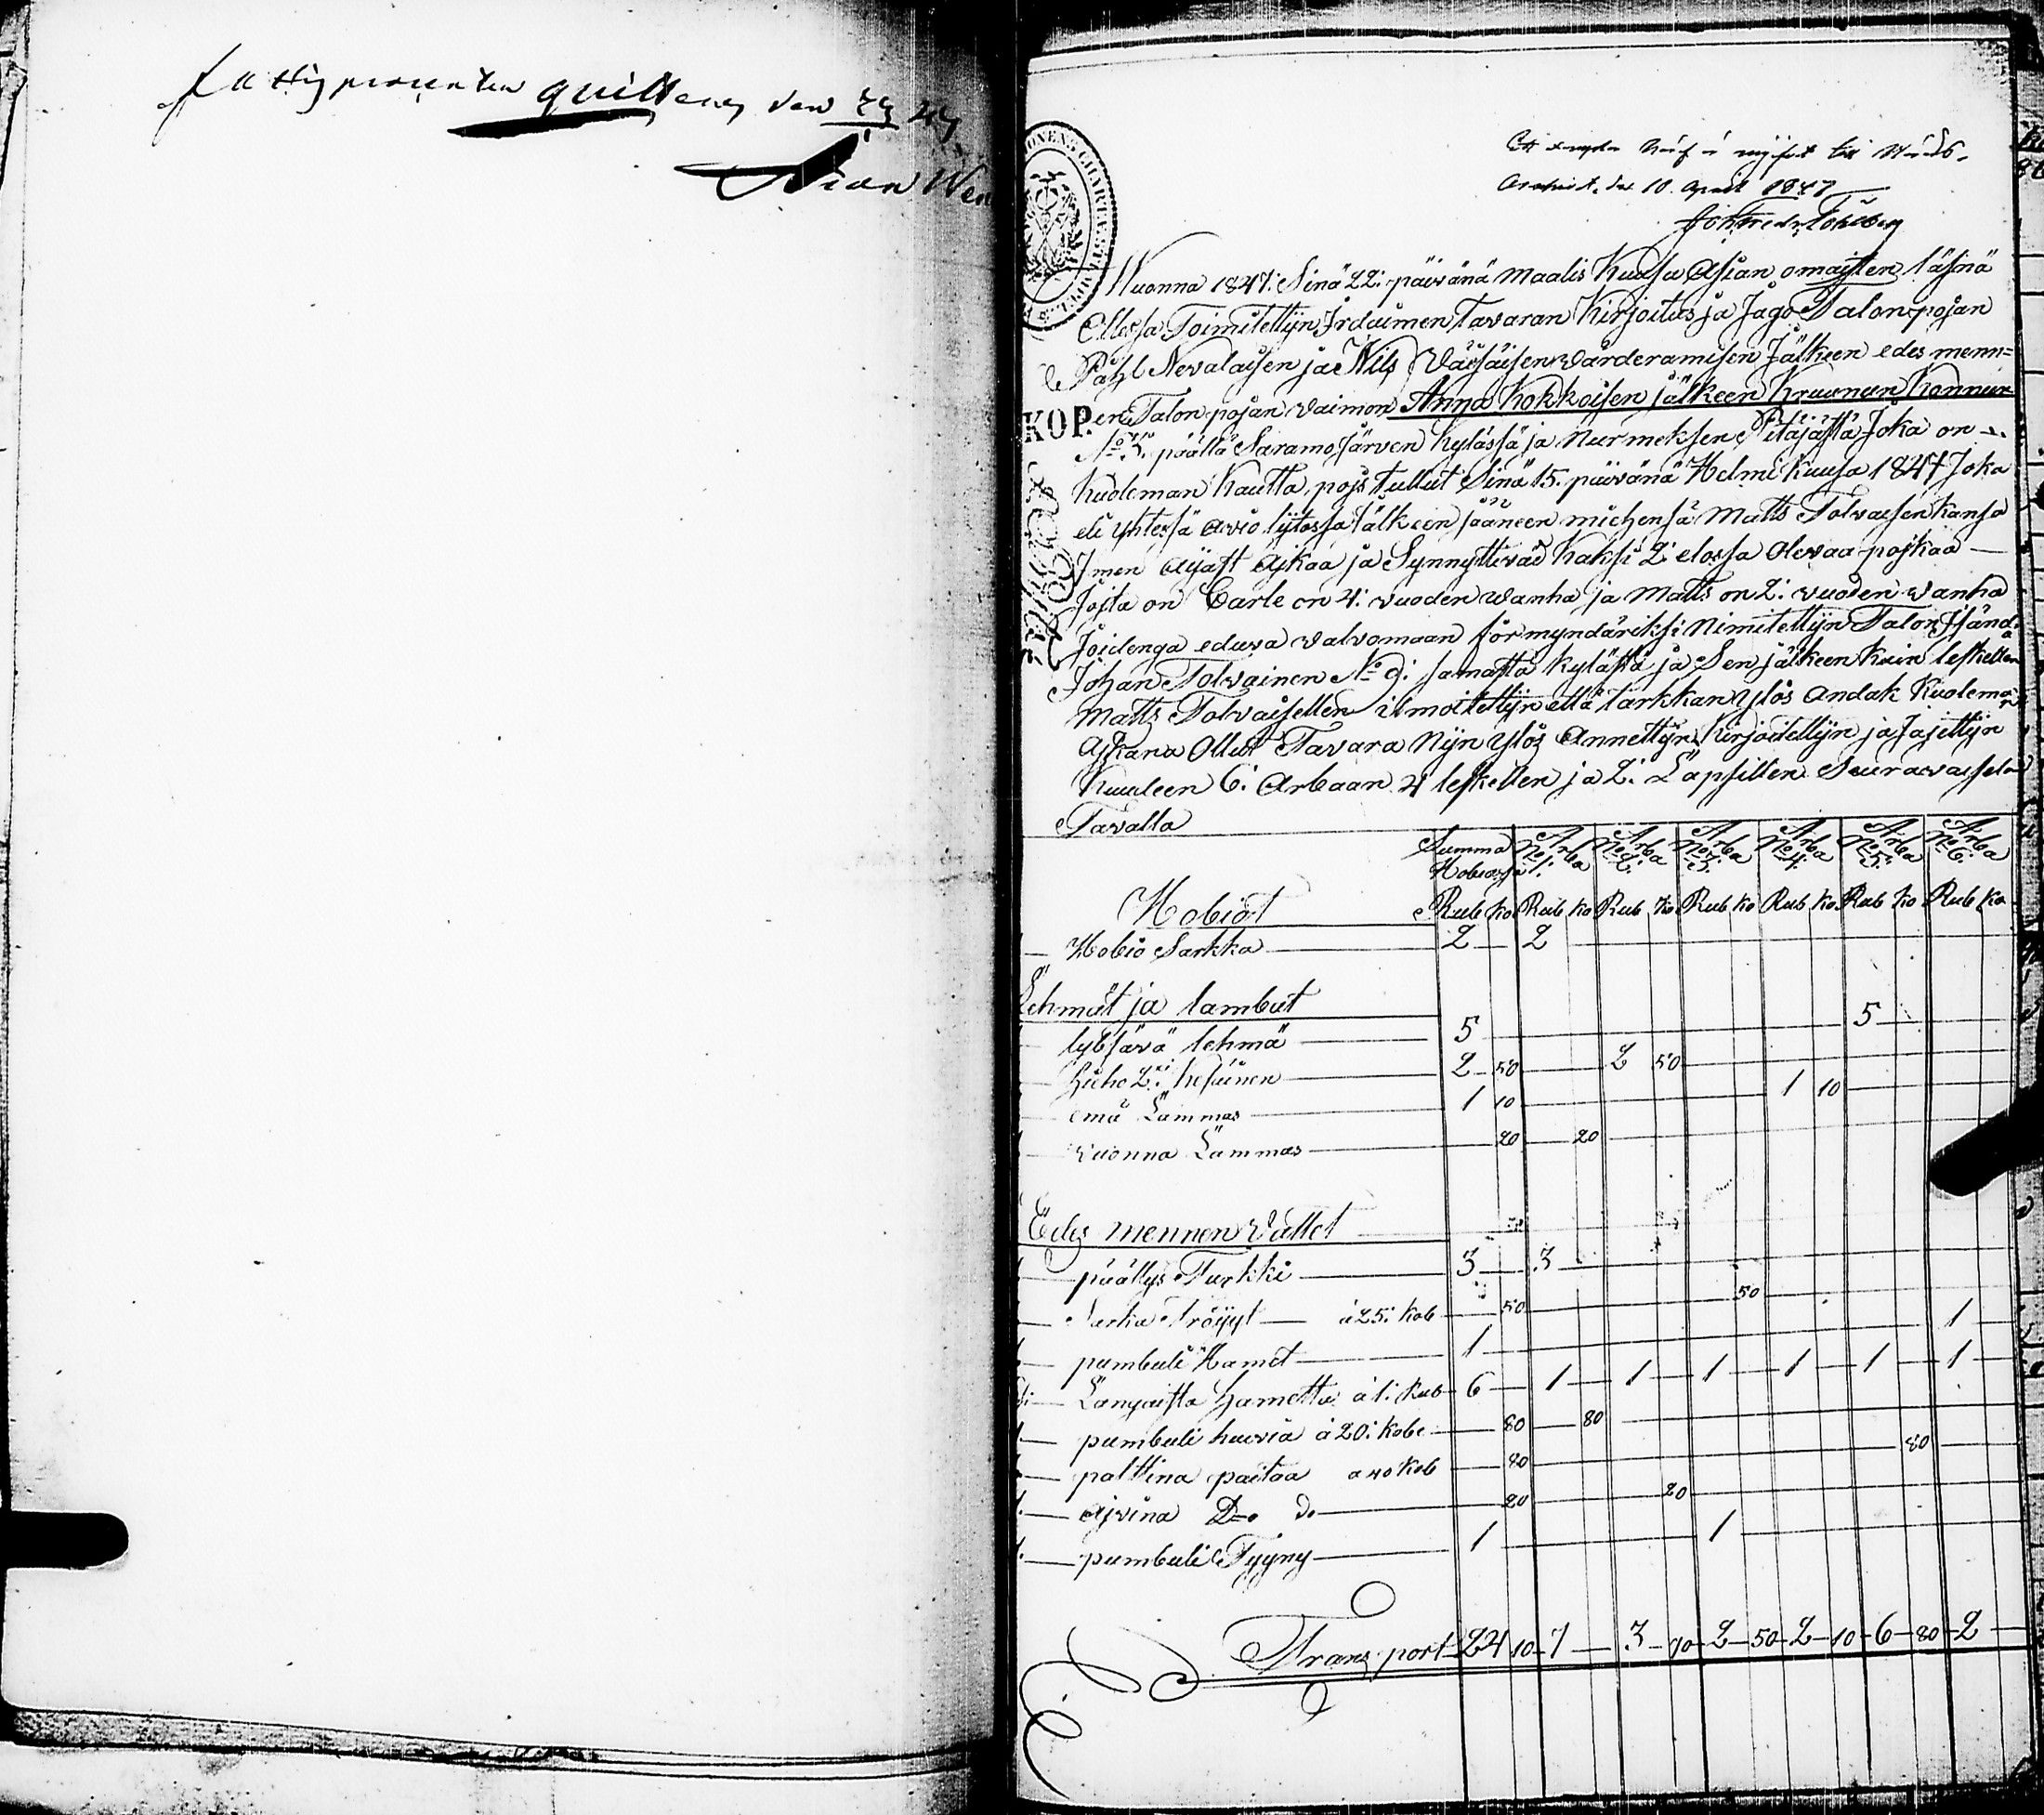 quitteras den
April 1847
KOP.
Wuonna 1847: Sinä 22: päivänä Maalis Kuusa Asian omajsten läsnä
Ollessa Toimitettijn Irdaimen Tavaran Kirjoitus ja Jago Talonpojan
Påhl Nevalaisen ja Nils Väisäisen Värderamisen Jälkeen edes menn=
en Talon pojan vaimon Anna Kokkoisen jälkeen Kruunun Konnun
No 3. päällä Saramo Järven Kylässä ja Nurmeksen Pitäjässä Joka on
Kuoleman Kautta pojs Tullut Sinä 15. päivänä Helmi Kuusa 1847 Joka
eli yhtessä avio lijtossa Jälkeen jääneen miehensä Matts Tolvaisen Kansa
ajkaa ja Synnyttiväd Kaksi 2: elossa Olevaa pojkaa
Jojsta on Carle on 4: vuoden wanha ja Matts on 2: vuoden wanha
Joidenga eduva valvomaan förmyndäriksi Nimitettijn Talon Isändä
Johan Tolvainen No 9: samasta kylästä ja Sen jälkeen kuin leskellen
Matts Tolvaisellen ilmoitettijn että tarkkan ylös andak Kuoleman
Ajkana Ollut Tavara Nijn ylös Annettijn Kirjoitettijn ja Jajettijn
Kuuteen 6: Arbaan 4 leskellen ja 2: Lapsillen Seuravaisella
Tavalla
Summa Arba Arba Arba Arba Arba Arba
Hobiassa No 1. No 2. No 3. No 4. No 5. No 6.
Hobiot Rub ko Rub ko Rub ko Rub ko Rub ko Rub ko Rub ko
Hobio Sarkka 2 2
Lehmät ja lambut
lybsävä lehmä 5 5
hieho 2:si kesäinen 2 50 2 50
emä Lammas 1 10 1 10
vuonna Lammas 20 20
Edes mennen Vattet
päällys Turkki 3 3
Sarka Tröijyt à 25: Kob 50 50
pumbuli Hamet 1 1
Langaista hametta à 1: Rub 6 1 1 1 1 1 1
pumbuli huvia à 20: Kobe 80 80
palttina paitaa a 40 Kob 80 80
ajvina Do do 20 20
pumbuli Tyyny 1 1
Transport 24 10 7 3 90 2 50 2 10 6 80 2